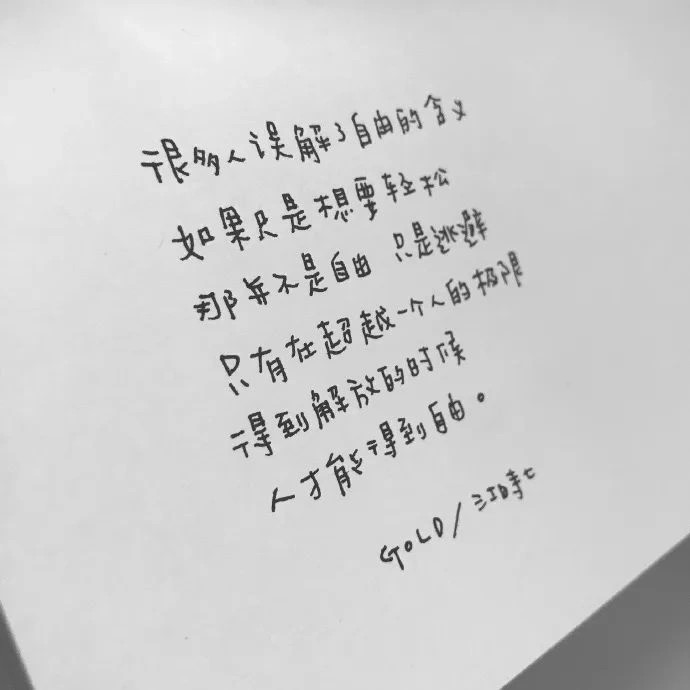 很多人误解了自由的含义
如果只是想要轻松
那并不是自由 只是逃避
只有在超越一个人的极限
得到解放的时候
人才能得到自由。
GOLD/